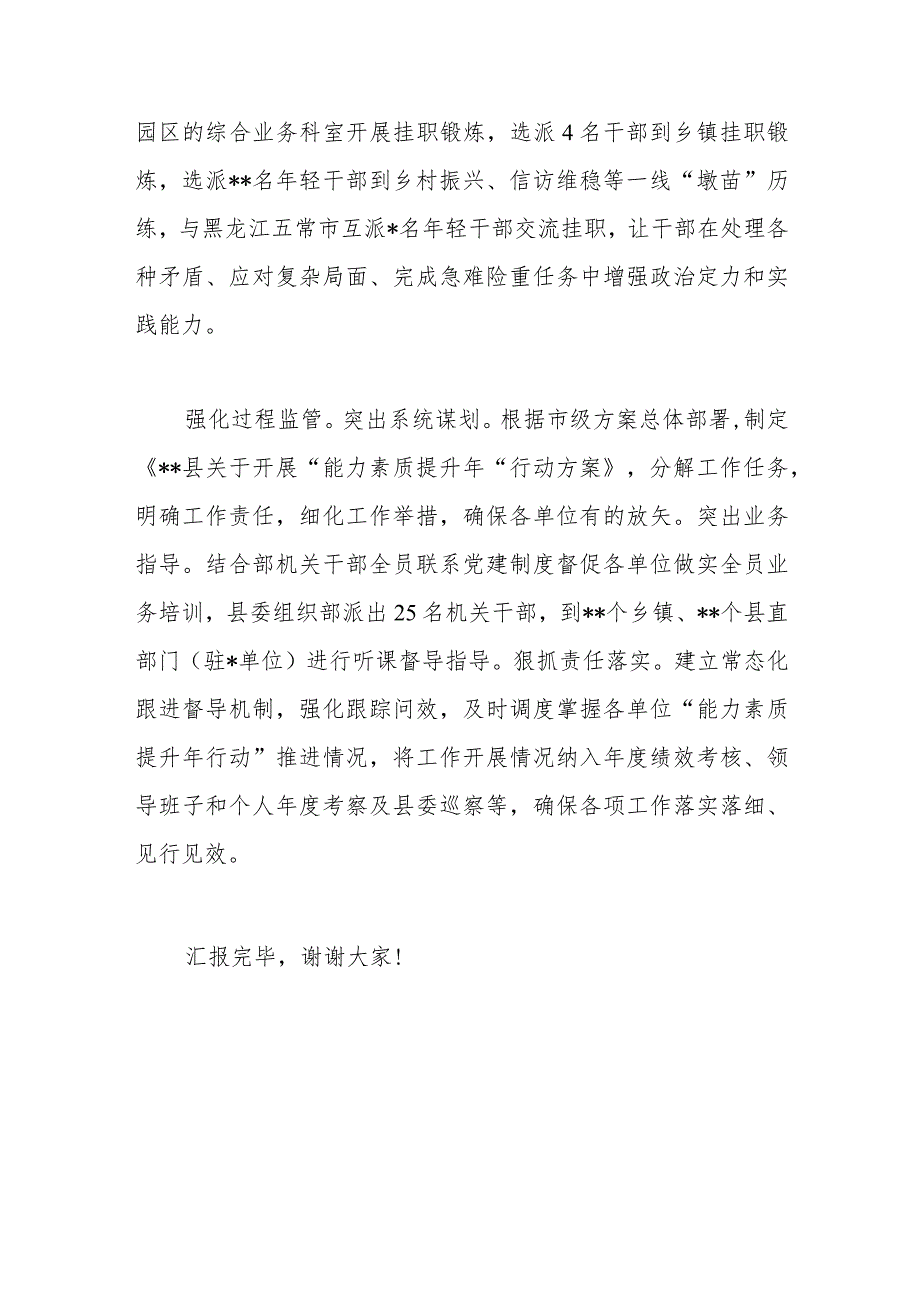 园区的综合业务科室开展挂职锻炼，选派4名干部到乡镇挂职锻
炼，选派**名年轻干部到乡村振兴、信访维稳等一线“墩苗”历
练，与黑龙江五常市互派*名年轻干部交流挂职，让干部在处理各
种矛盾、应对复杂局面、完成急难险重任务中增强政治定力和实
践能力。
强化过程监管。突出系统谋划。根据市级方案总体部署,制定
《**县关于开展“能力素质提升年“行动方案》，分解工作任务，
明确工作责任，细化工作举措，确保各单位有的放矢。突出业务
指导。结合部机关干部全员联系党建制度督促各单位做实全员业
务培训，县委组织部派出25名机关干部，到**个乡镇、**个县直
部门（驻*单位）进行听课督导指导。狠抓责任落实。建立常态化
跟进督导机制，强化跟踪问效，及时调度掌握各单位“能力素质
提升年行动”推进情况，将工作开展情况纳入年度绩效考核、领
导班子和个人年度考察及县委巡察等，确保各项工作落实落细、
见行见效。
汇报完毕，谢谢大家!